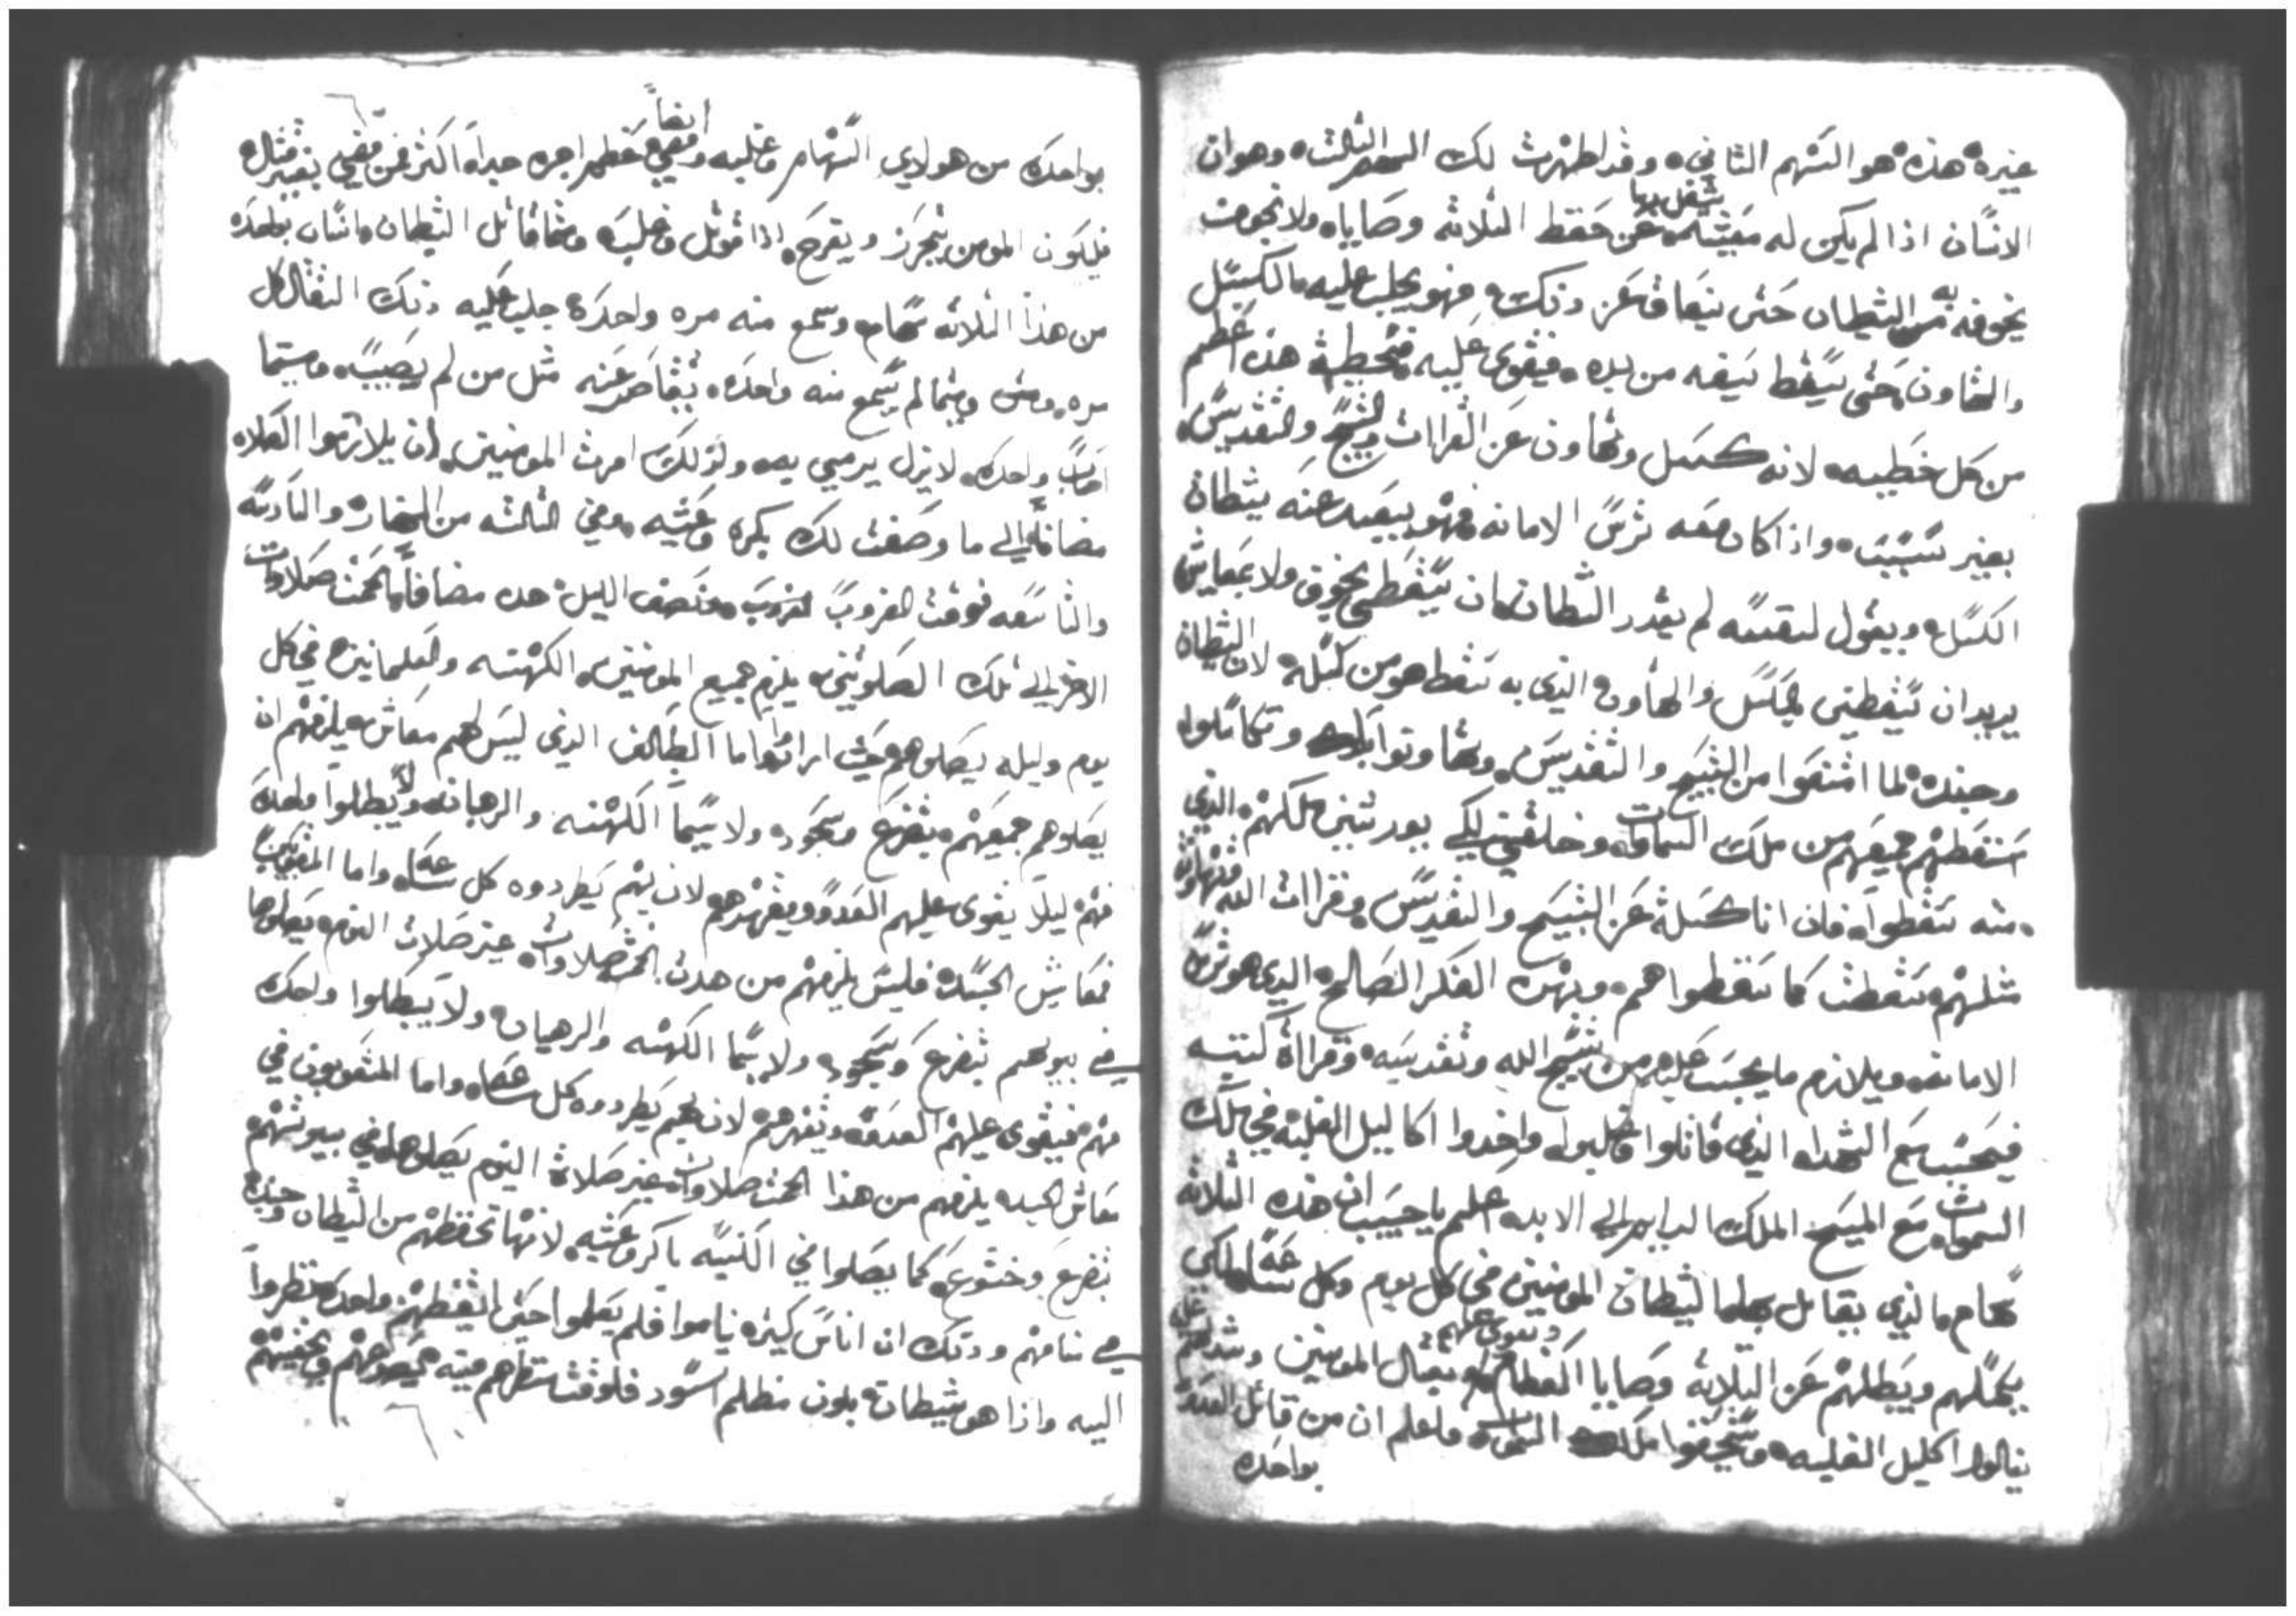 غيره هذه هو السهم الثاني وقد اظهرت لك السهم الثالث وهو ان
الانسان اذا لم يكن له معيشه يشغل بها عن حفظ الثلاثه وصاياه ولا بخوف
يخوفه به من الشيطان حتى يتعاق عن ذلك فهو يجلب عليه بالكسل
والتهاون حتى يسقط سيفه من يده فيقوى عليه فخطية هذه اعظم
من كل خطيه لانه كسل وتهاون عن القراات والتسبيح والتقديس
بغير سبب واذا كان معه ترس الامانه فهو يبعيد عنه شيطان
الكسل ويقول لنفسه لم يقدر الشيطان ان يسقطني بخوف ولا بمعاش
يريد ان يسقطني بالكسل والتهاون الذي به سقط هو من كسله لان الشيطان
وجنده لما امتنعوا من التسبيح والتقديس وتهاونوا وتكاسلوا
اسقطهم جميعهم من ملك السماوات وخلقني لكي يورثني ملكهم الذي
منه سقطوا فان انا كسلة عن التسبيح والتقديس وقراات الله
مثلهم سقطت كما سقطوا هم وبهذه الفكر الصالح الذي هو ترس
الامانه ويلازم ما يجب عليه من تسبيح الله وتقديسه وقراأة كتبه
فيحسب مع الشهداء الذي قاتلوا وغلبوا واخدوا اكاليل الغلبه في ملك
السموات مع المسيح الملك الدايم الى الابد اعلم يا حبيب ان هذه الثلاثه
سهام الذي يقاتل بها الشيطان المومنين في كل يوم وكل ساعه لكي
يكسلهم ويبطلهم عن الثلاثه وصايا العظام ويقوي عليهم وبقتال المومنين
ينالوا اكليل الغلبه ويستحقوا ملك السموات واعلم ان من قاتل العدو
بواحده
بواحده من هولاي السهام وغلبه ايضاً عظم اجره جداً اكثر من مضي بغير قتال
فليكون المومن يتحرز ويفرح اذا قوتل وغلبه ومتى قاتل الشيطان انسان بواحده
من هذا الثلاثه سهام وسمع منه مره واحده جلب عليه ذلك القتال كل
مره ومتى ما لم يسمع منه واحده تقاصر عنه مثل من لم يصيب
اصاب واحده لا يزل يرمي به ولذلك امرت المومنين ان يلازموا الصلاه
مضافاً الى ما وصفت لك بكره وعشيه وفي الثالثه من النهار والسادسه
والتاسعه فوقت الغروب ونصف الليل هده مضافاً الخمس صلاوات
الاخر الى تلك الصلوتين يلزم جميع المومنين الكهنه والعلمانين في كل
يوم وليله يصلوهم حيث ارادوا اما الطايف الذي ليس لهم معاش يلزمهم ان
يصلوهم جميعهم بتضرع وسجود ولا سيما الكهنه والرهبان ولا يبطلوا واحده
منهم ليلا يقوى عليهم العدو ويقهرهم لان بهم يطردوه كل ساعه واما المتعوبين
فمعاش الجسد فليس يلزمهم من هدة الخمس صلاوات غير صلات النوم يصلوها
في بيوتهم بتضرع وسجود ولا سيما الكهنه والرهبان ولا يبطلوا واحده
منهم فيقوى عليهم العدو وتقهرهم لان بهم يطردوه كل ساعه واما المتعوبون في
معاش الجسد يلزمهم من هذا الخمس صلاوات غير صلاة النوم يصلوها في بيوتهم
بتضرع وخشوع كما يصلوا في الكنيسه باكر وعشيه لانها تحفظهم من الشيطان وجنده
في منامهم وذلك ان اناس كتيره ناموا فلم يعلموا حتى ايقظهم واحده نظروا
اليه واذا هو شيطان بلون مظلم اسود فلوقت